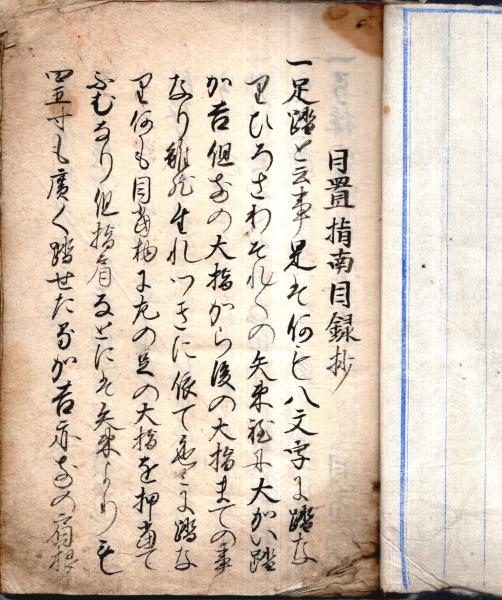 日置指南目録抄
一足踏と云事足は何も八文字に踏な
りひろさわそれ〳〵の矢束程に大かい踏
か吉但前の大指から後の大指まての事
なり雖然生れつきに依て色々に踏な
り何も目当物に左の足の大指を押当て
ふむなり但指肩なとには矢束よりも
四五寸も広く踏せたるか吉亦前の肩根